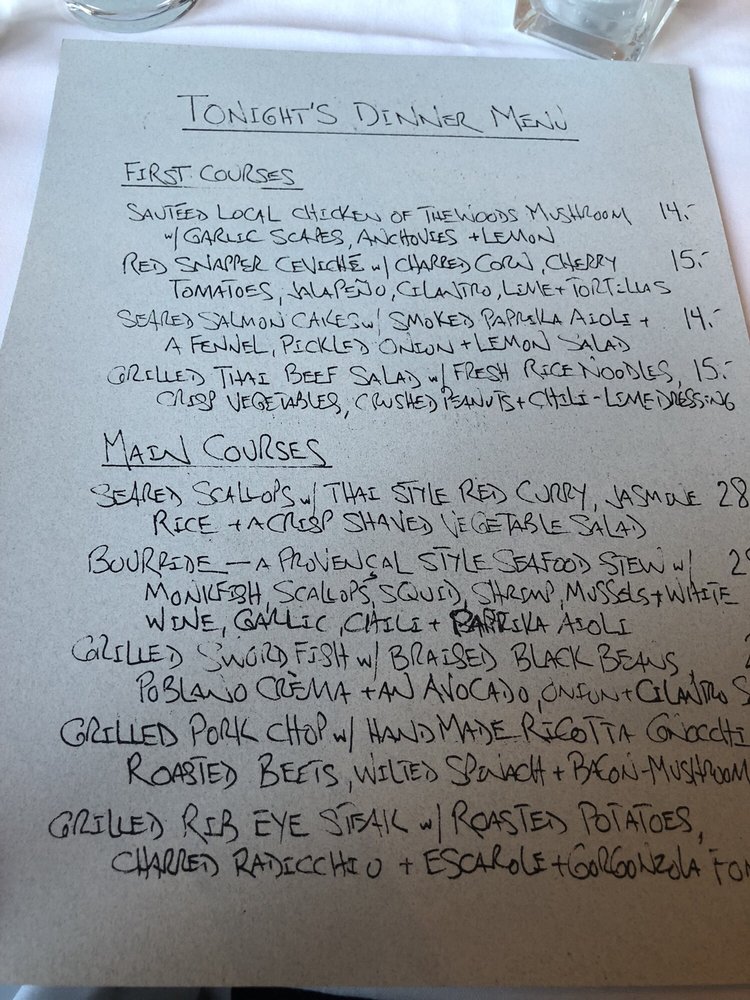 TONIGHT'S DINNER MENU
FIRST COURSES
SAUTÉED LOCAL CHICKEN OF THE WOODS MUSHROOM 14.-
w/ GARLIC SCAPES, ANCHOVIES + LEMON
RED SNAPPER CEVICHÉ w/ CHARRED CORN, CHERRY 15.-
TOMATOES, JALAPEÑO, CILANTRO, LIME + TORTILLAS
SEARED SALMON CAKES w/ SMOKED PAPRIKA AIOLI + 14.-
A FENNEL, PICKLED ONION + LEMON SALAD
GRILLED THAI BEEF SALAD w/ FRESH RICE NOODLES, 15.-
CRISP VEGETABLES, CRUSHED PEANUTS + CHILI-LIME DRESSING
MAIN COURSES
SEARED SCALLOPS w/ THAI STYLE RED CURRY, JASMINE 28
RICE + A CRISP SHAVED VEGETABLE SALAD
BOURRIDE — A PROVENÇAL STYLE SEAFOOD STEW w/
MONKFISH, SCALLOPS, SQUID, SHRIMP, MUSSELS + WHITE
WINE, GARLIC, CHILI + PAPRIKA AIOLI
GRILLED SWORDFISH w/ BRAISED BLACK BEANS,
POBLANO CRÈMA + AN AVOCADO, ONION + CILANTRO
GRILLED PORK CHOP w/ HANDMADE RICOTTA GNOCCHI
ROASTED BEETS, WILTED SPINACH + BACON-MUSHROOM
GRILLED RIB EYE STEAK w/ ROASTED POTATOES,
CHARRED RADICCHIO + ESCAROLE + GORGONZOLA